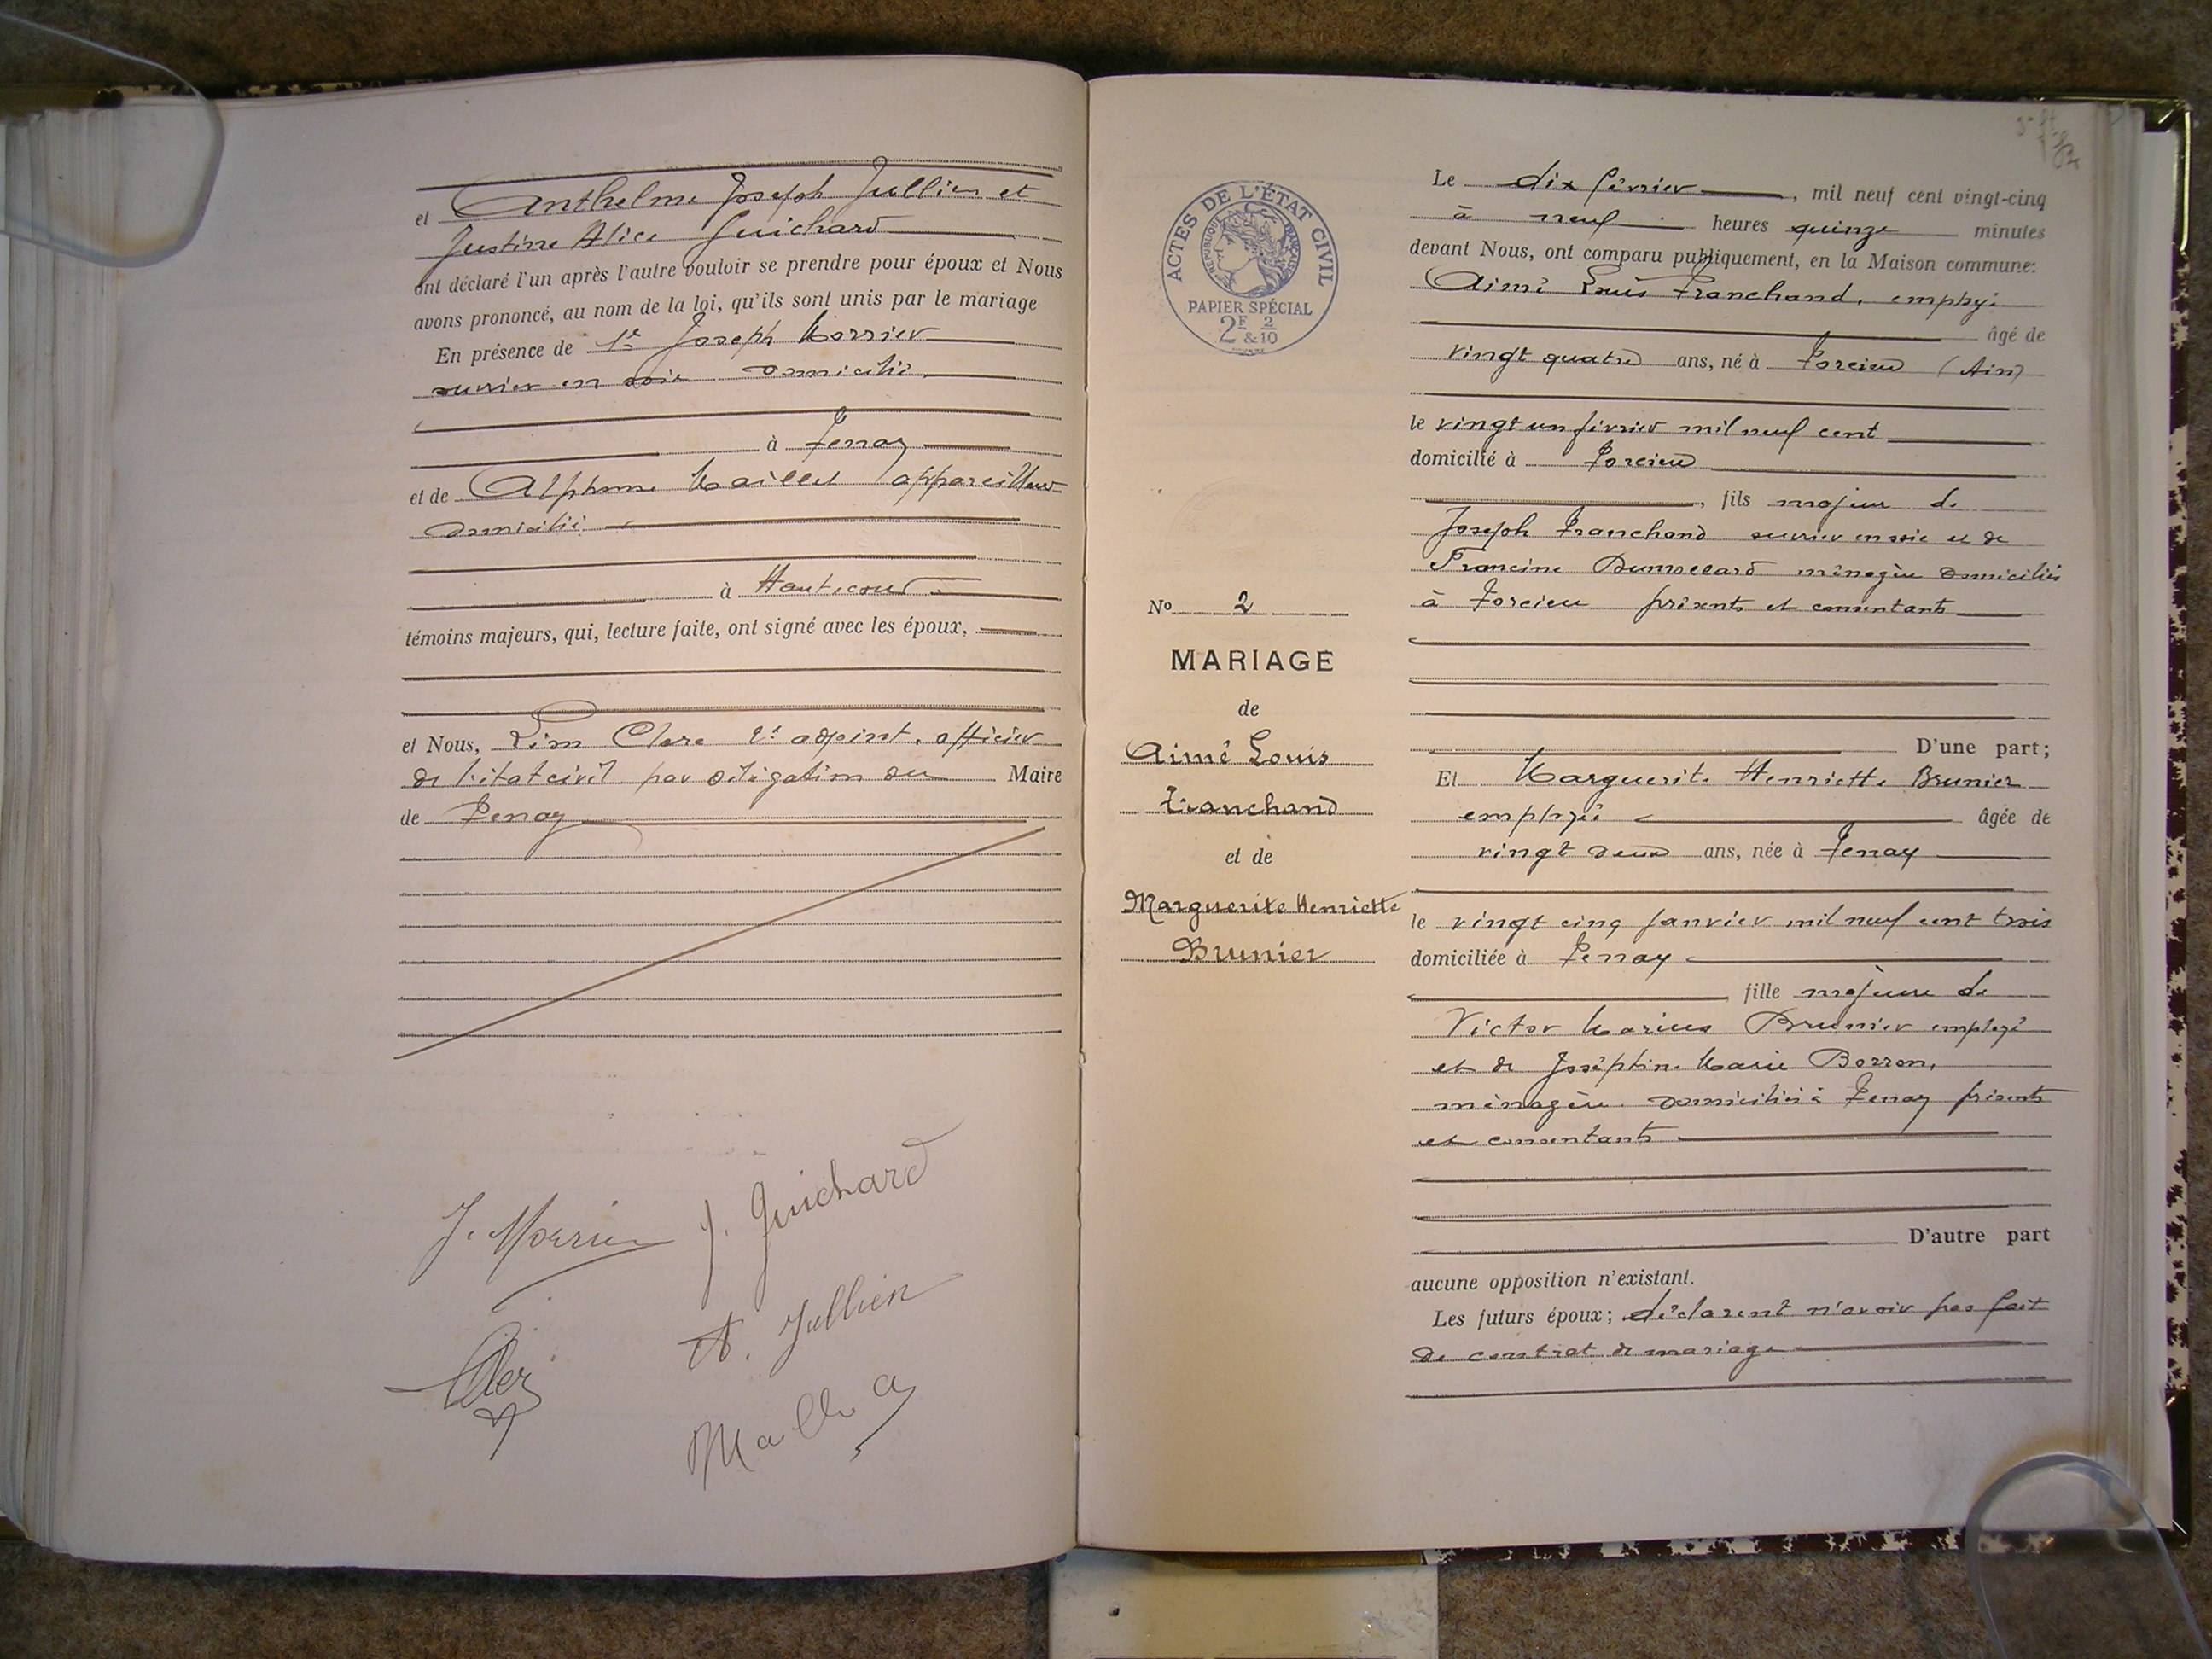 et Anthelme Joseph Jullien et
Justine Alice Guichard
ont déclaré l'un après l'autre vouloir se prendre pour époux et Nous
avons prononcé, au nom de la loi, qu'ils sont unis par le mariage
En présence de 1° Joseph Morrier
ouvrier en soie domicilié
à Tenay
et de Alphonse Maillet appareilleur
domicilié
à Hautecour
témoins majeurs, qui, lecture faite, ont signé avec les époux,
et Nous, Clerc adjoint, officier
de l'état civil par délégation du Maire
de Tenay
J. Morrier J. Guichard
A. Jullien
Clerc
ACTES DE L'ÉTAT CIVIL
RÉPUBLIQUE FRANÇAISE
PAPIER SPÉCIAL
2F & 2/10
No 2
MARIAGE
de
Aimé Louis
Tranchand
et de
Marguerite Henriette
Brunier
Le dix février, mil neuf cent vingt-cinq
à neuf heures quinze minutes
devant Nous, ont comparu publiquement, en la Maison commune:
Aimé Louis Tranchand, employé
âgé de
vingt quatre ans, né à Torcieu (Ain)
le vingt un février mil neuf cent
domicilié à Torcieu
, fils majeur de
Joseph Tranchand ouvrier en soie et de
Francine Dumollard ménagère domiciliés
à Torcieu présents et consentants
D'une part;
Et Marguerite Henriette Brunier
employée âgée de
vingt deux ans, née à Tenay
le vingt cinq janvier mil neuf cent trois
domiciliée à Tenay
fille majeure de
Victor Marius Brunier employé
et de Joséphine Marie Borron,
ménagère domiciliés à Tenay présents
et consentants
D'autre part
aucune opposition n'existant.
Les futurs époux; déclarent n'avoir pas fait
de contrat de mariage